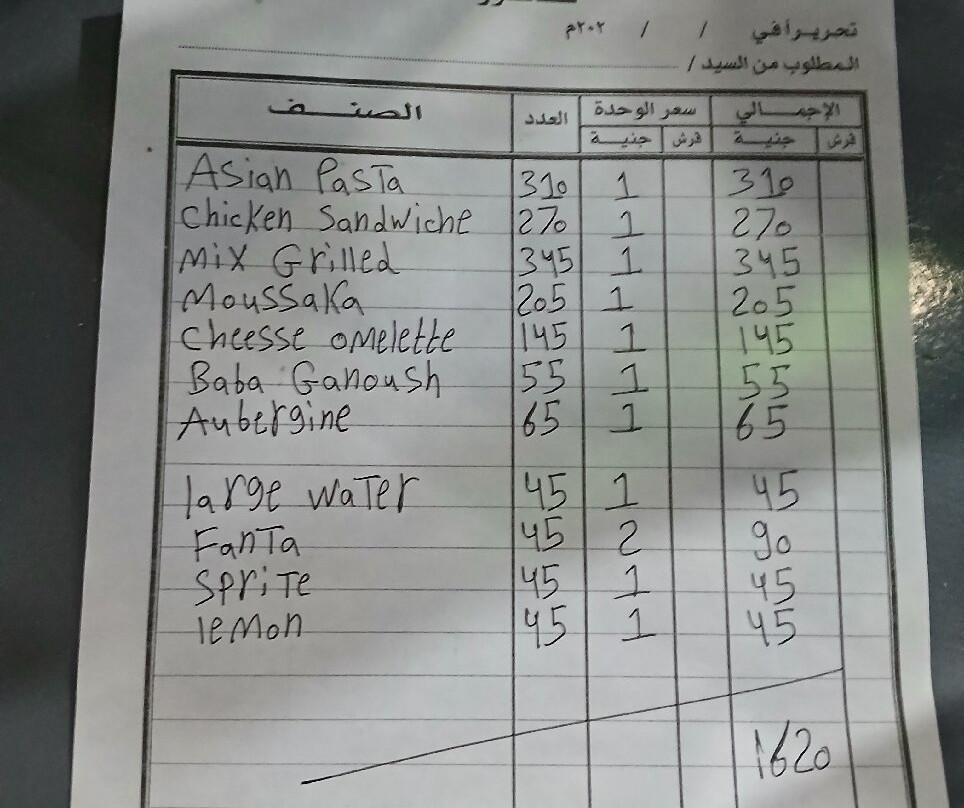 تحريراً في / / ٢٠٢م
المطلوب من السيد /
الصنف العدد سعر الوحدة الإجمالي
جنية قرش جنية قرش
Asian Pasta 310 1 310
Chicken Sandwiche 270 1 270
Mix Grilled 345 1 345
Moussaka 205 1 205
Cheesse omelette 145 1 145
Baba Ganoush 55 1 55
Aubergine 65 1 65
large water 45 1 45
Fanta 45 2 90
Sprite 45 1 45
lemon 45 1 45
1620